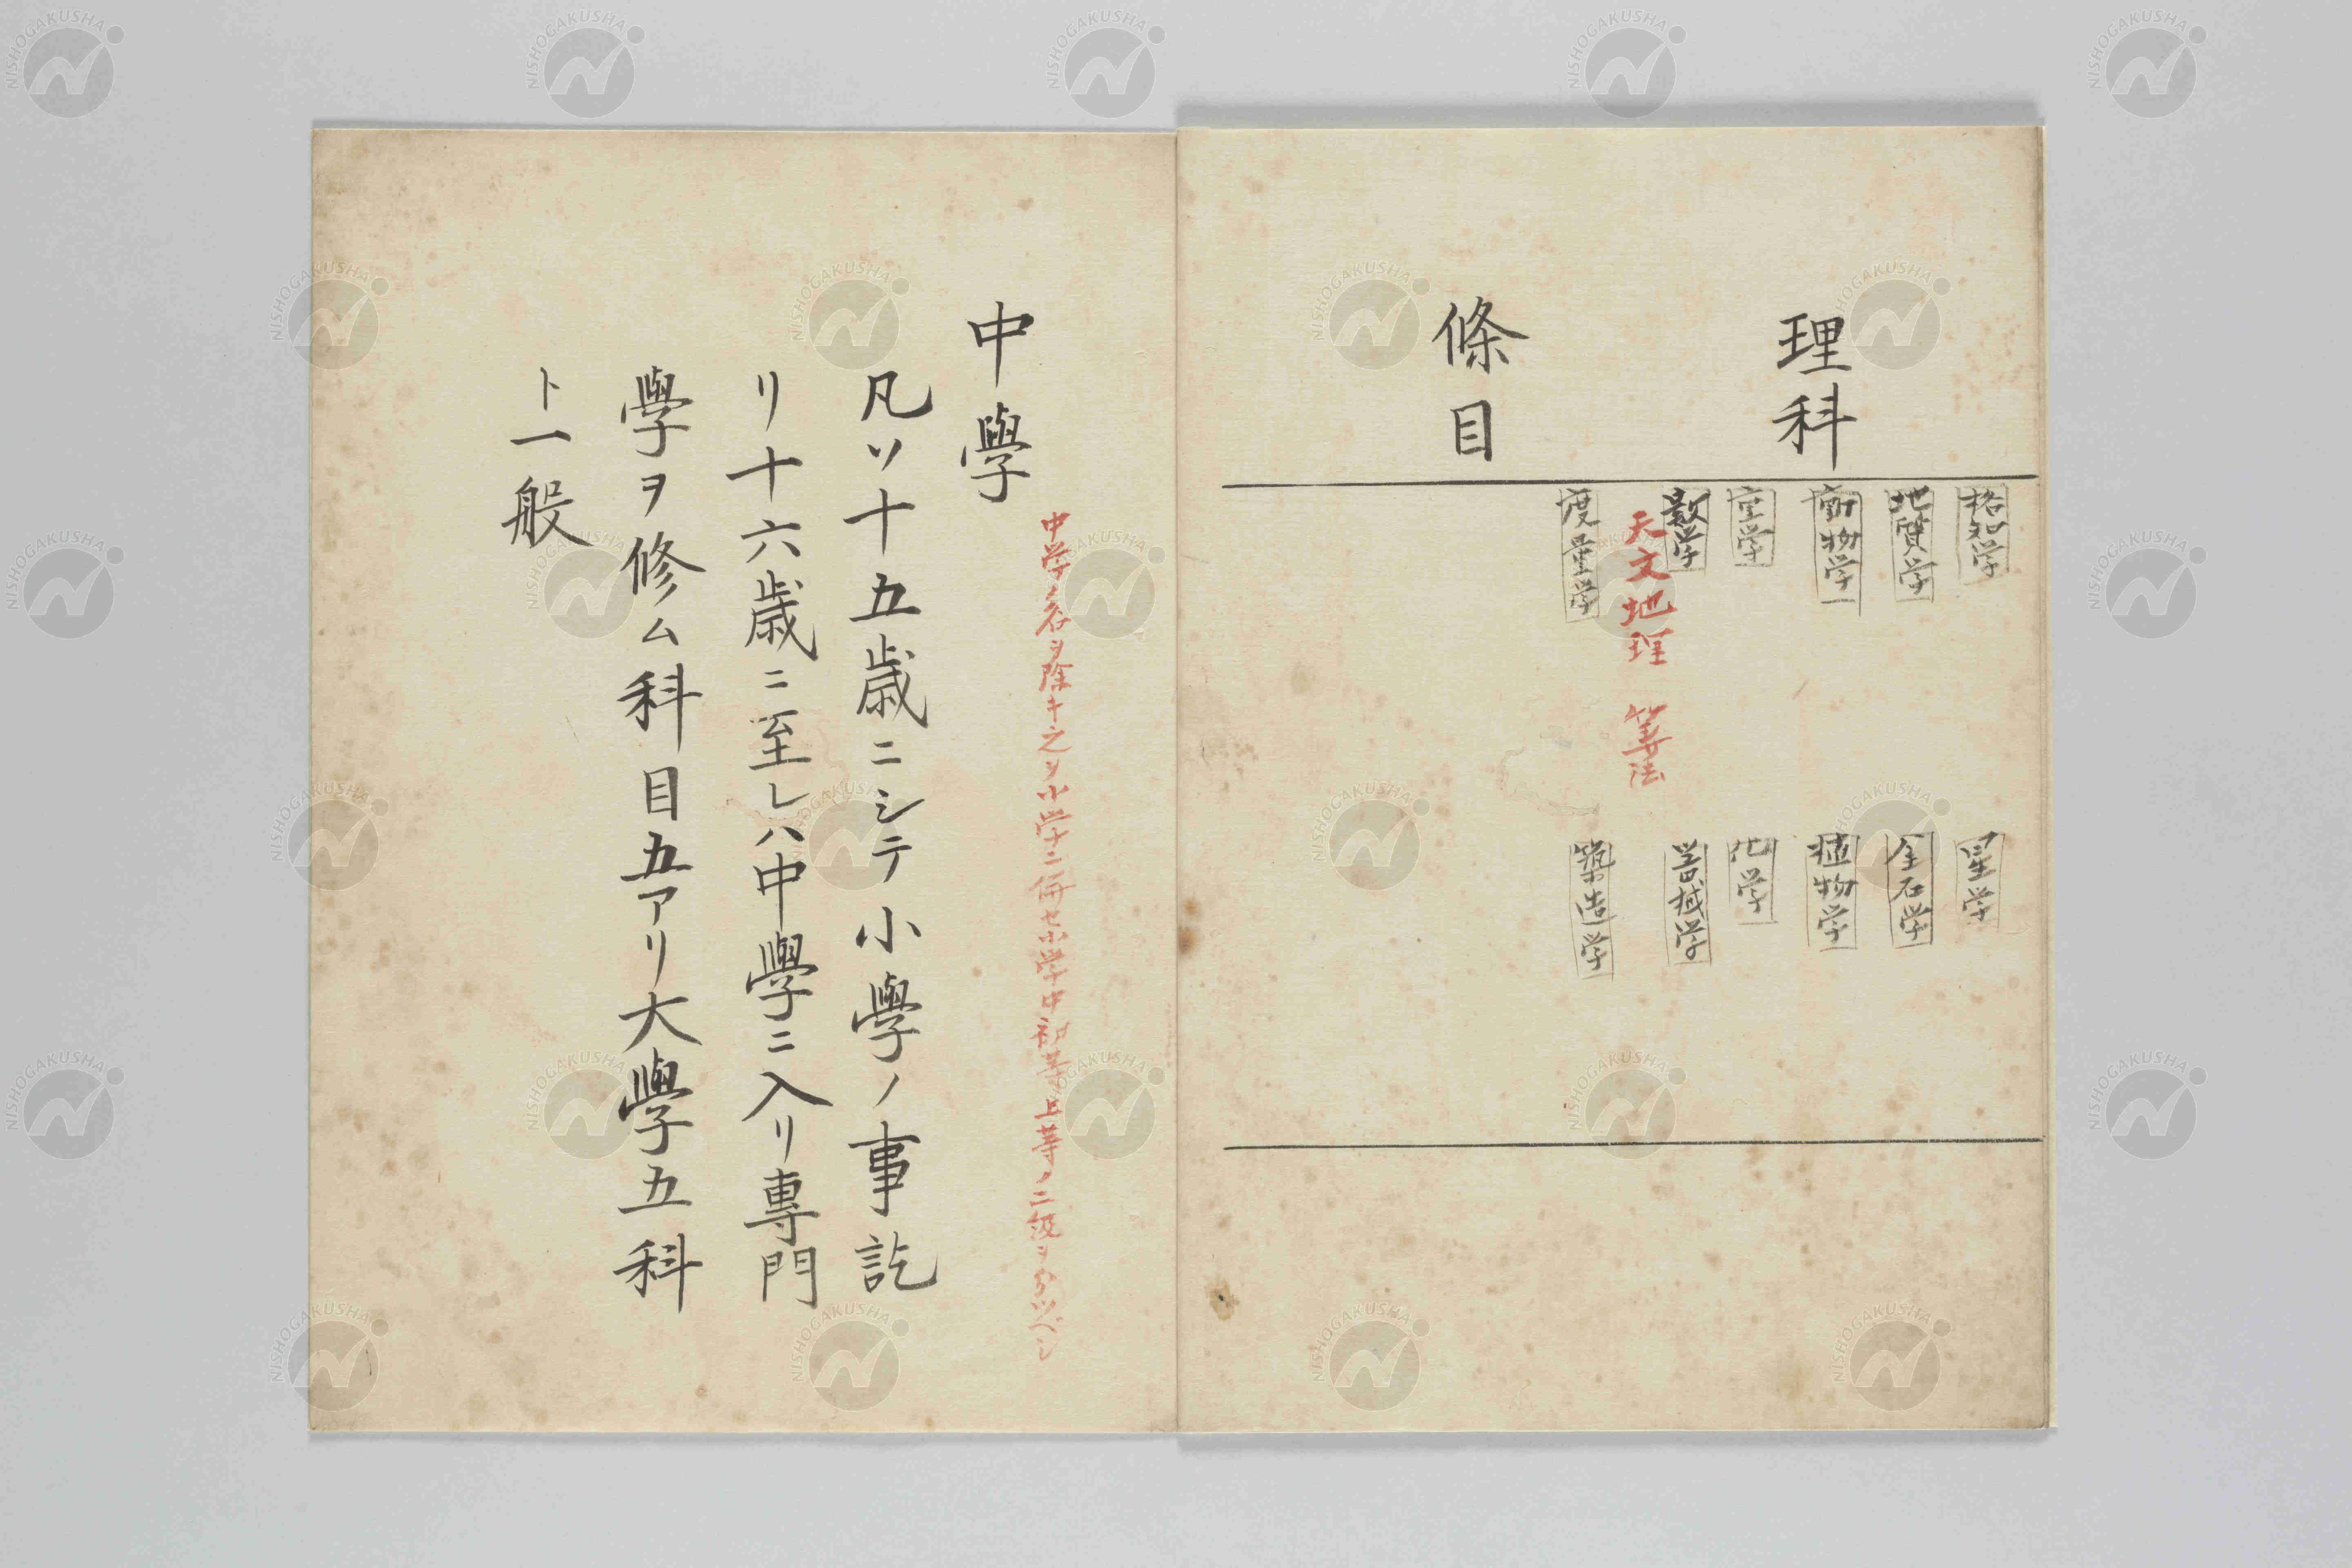 理科
格知学
星学
地質学
金石学
動物学
植物学
重学
化学
数学
器械学
天文地理 筭法
度量学
築造学
條目
中學
中学ノ名ヲ除キ之ヲ小学ニ併セ小学中初等上等ノ二級ヲ分ツベシ
凡ソ十五歳ニシテ小學ノ事訖
リ十六歳ニ至レハ中學ニ入リ專門
學ヲ修ム科目五アリ大學五科
ト一般
NISHOGAKUSHA